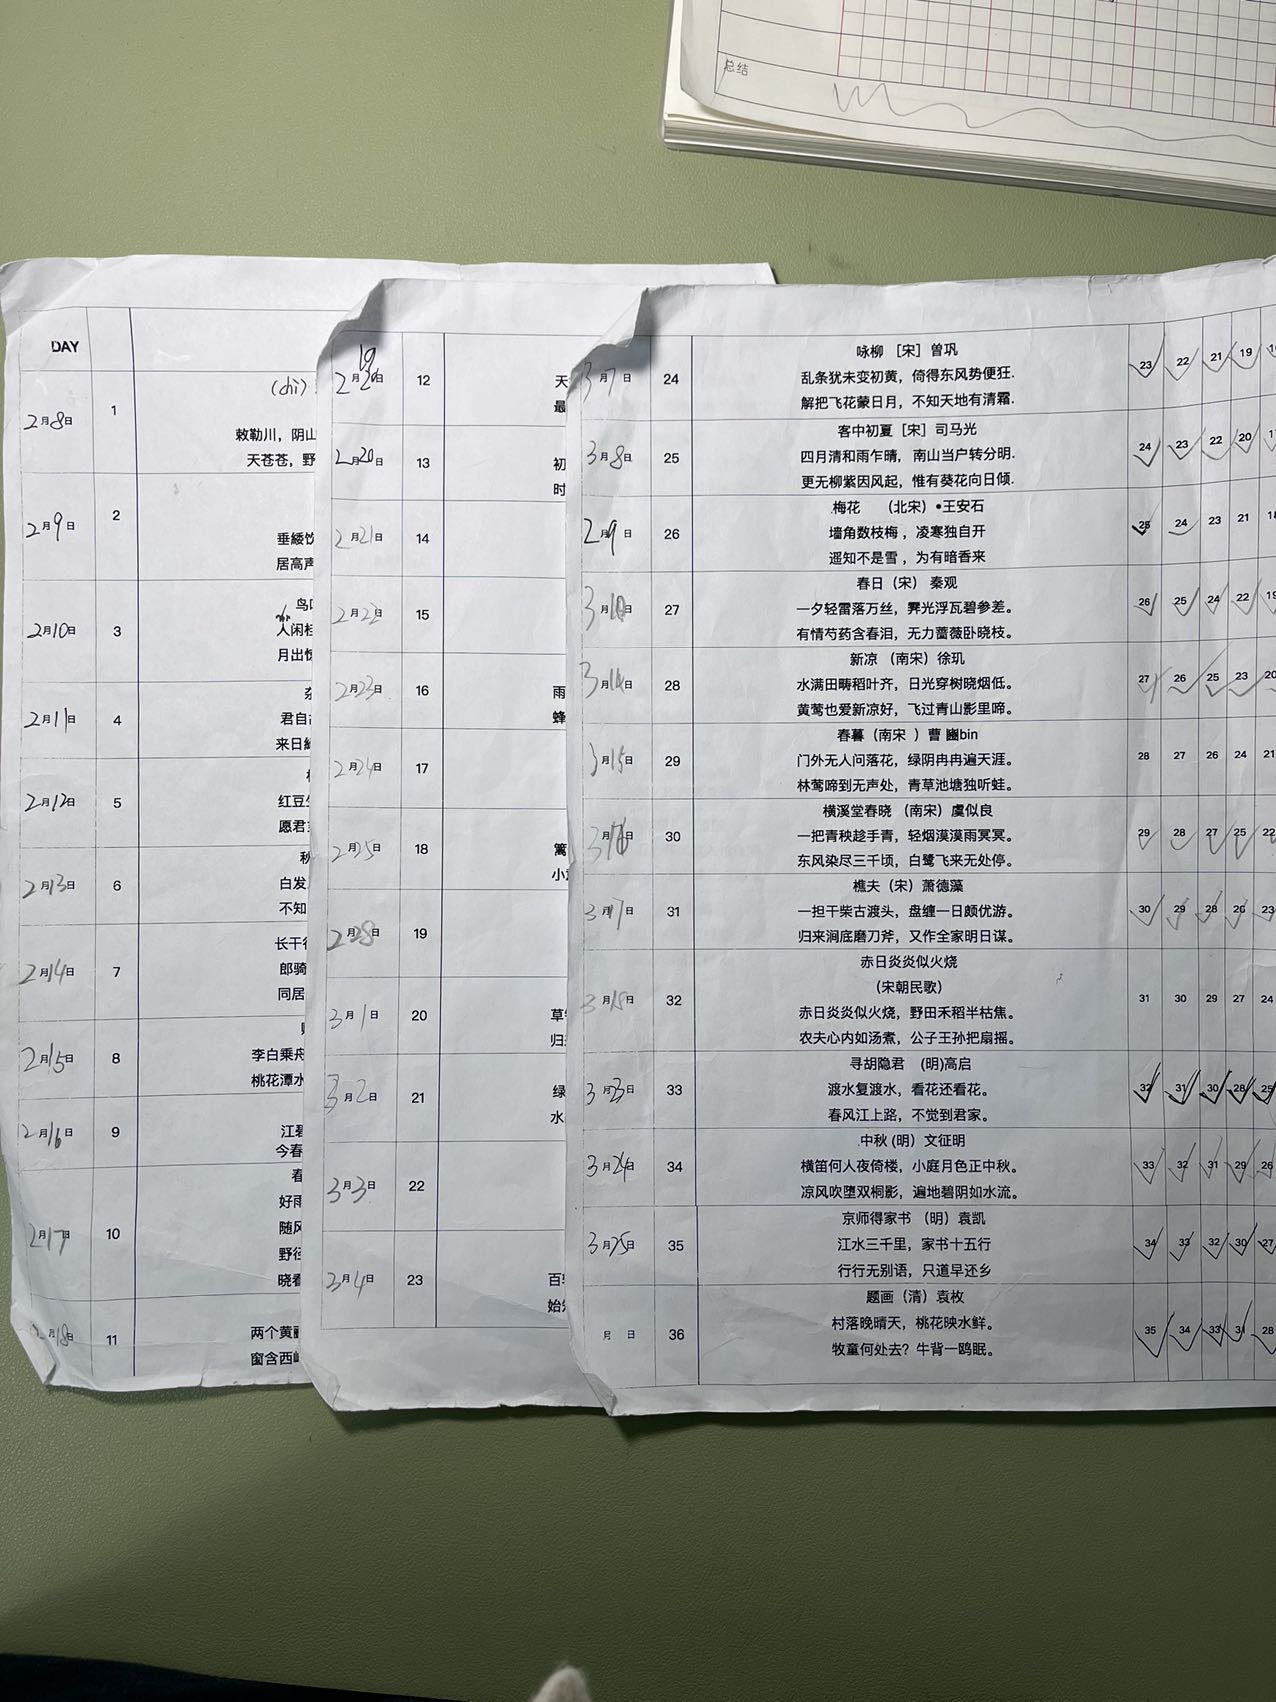 总结
DAY
2月8日 1
(chì)
敕勒川，阴山
天苍苍，野
2月9日 2
垂緌饮
居高声
2月10日 3
鸟
人闲桂
月出惊
2月11日 4
杂
君自
来日
2月12日 5
红豆
愿君
2月13日 6
秋
白发
不知
2月14日 7
长干行
郎骑
同居
2月15日 8
李白乘舟
桃花潭水
2月16日 9
江碧
今春
2月17日 10
春
好雨
随风
野径
晓看
2月18日 11
两个黄
窗含西
19
2月20日 12
天
最
2月20日 13
初
时
2月21日 14
2月22日 15
2月23日 16
雨
蜂
2月24日 17
2月25日 18
篱
小
2月28日 19
3月1日 20
草
归
3月2日 21
绿
水
3月3日 22
3月4日 23
百
始
3月7日 24 咏柳 [宋] 曾巩 23 22 21 19
乱条犹未变初黄，倚得东风势便狂.
解把飞花蒙日月，不知天地有清霜.
3月8日 25 客中初夏 [宋] 司马光 24 23 22 20
四月清和雨乍晴，南山当户转分明.
更无柳絮因风起，惟有葵花向日倾.
2月9日 26 梅花 （北宋）•王安石 25 24 23 21 18
墙角数枝梅，凌寒独自开
遥知不是雪，为有暗香来
3月10日 27 春日（宋） 秦观 26 25 24 22 19
一夕轻雷落万丝，霁光浮瓦碧参差。
有情芍药含春泪，无力蔷薇卧晓枝。
3月14日 28 新凉 （南宋）徐玑 27 26 25 23 20
水满田畴稻叶齐，日光穿树晓烟低。
黄莺也爱新凉好，飞过青山影里啼。
3月15日 29 春暮（南宋 ）曹 豳bin 28 27 26 24 21
门外无人问落花，绿阴冉冉遍天涯。
林莺啼到无声处，青草池塘独听蛙。
3月16日 30 横溪堂春晓 （南宋）虞似良 29 28 27 25 22
一把青秧趁手青，轻烟漠漠雨冥冥。
东风染尽三千顷，白鹭飞来无处停。
3月17日 31 樵夫（宋）萧德藻 30 29 28 26 23
一担干柴古渡头，盘缠一日颇优游。
归来涧底磨刀斧，又作全家明日谋。
3月18日 32 赤日炎炎似火烧 31 30 29 27 24
（宋朝民歌）
赤日炎炎似火烧，野田禾稻半枯焦。
农夫心内如汤煮，公子王孙把扇摇。
3月23日 33 寻胡隐君 (明)高启 32 31 30 28 25
渡水复渡水，看花还看花。
春风江上路，不觉到君家。
3月24日 34 中秋 (明）文征明 33 32 31 29 26
横笛何人夜倚楼，小庭月色正中秋。
凉风吹堕双桐影，遍地碧阴如水流。
3月25日 35 京师得家书 （明）袁凯 34 33 32 30 27
江水三千里，家书十五行
行行无别语，只道早还乡
月 日 36 题画（清）袁枚 35 34 33 31 28
村落晚晴天，桃花映水鲜。
牧童何处去？牛背一鸥眠。